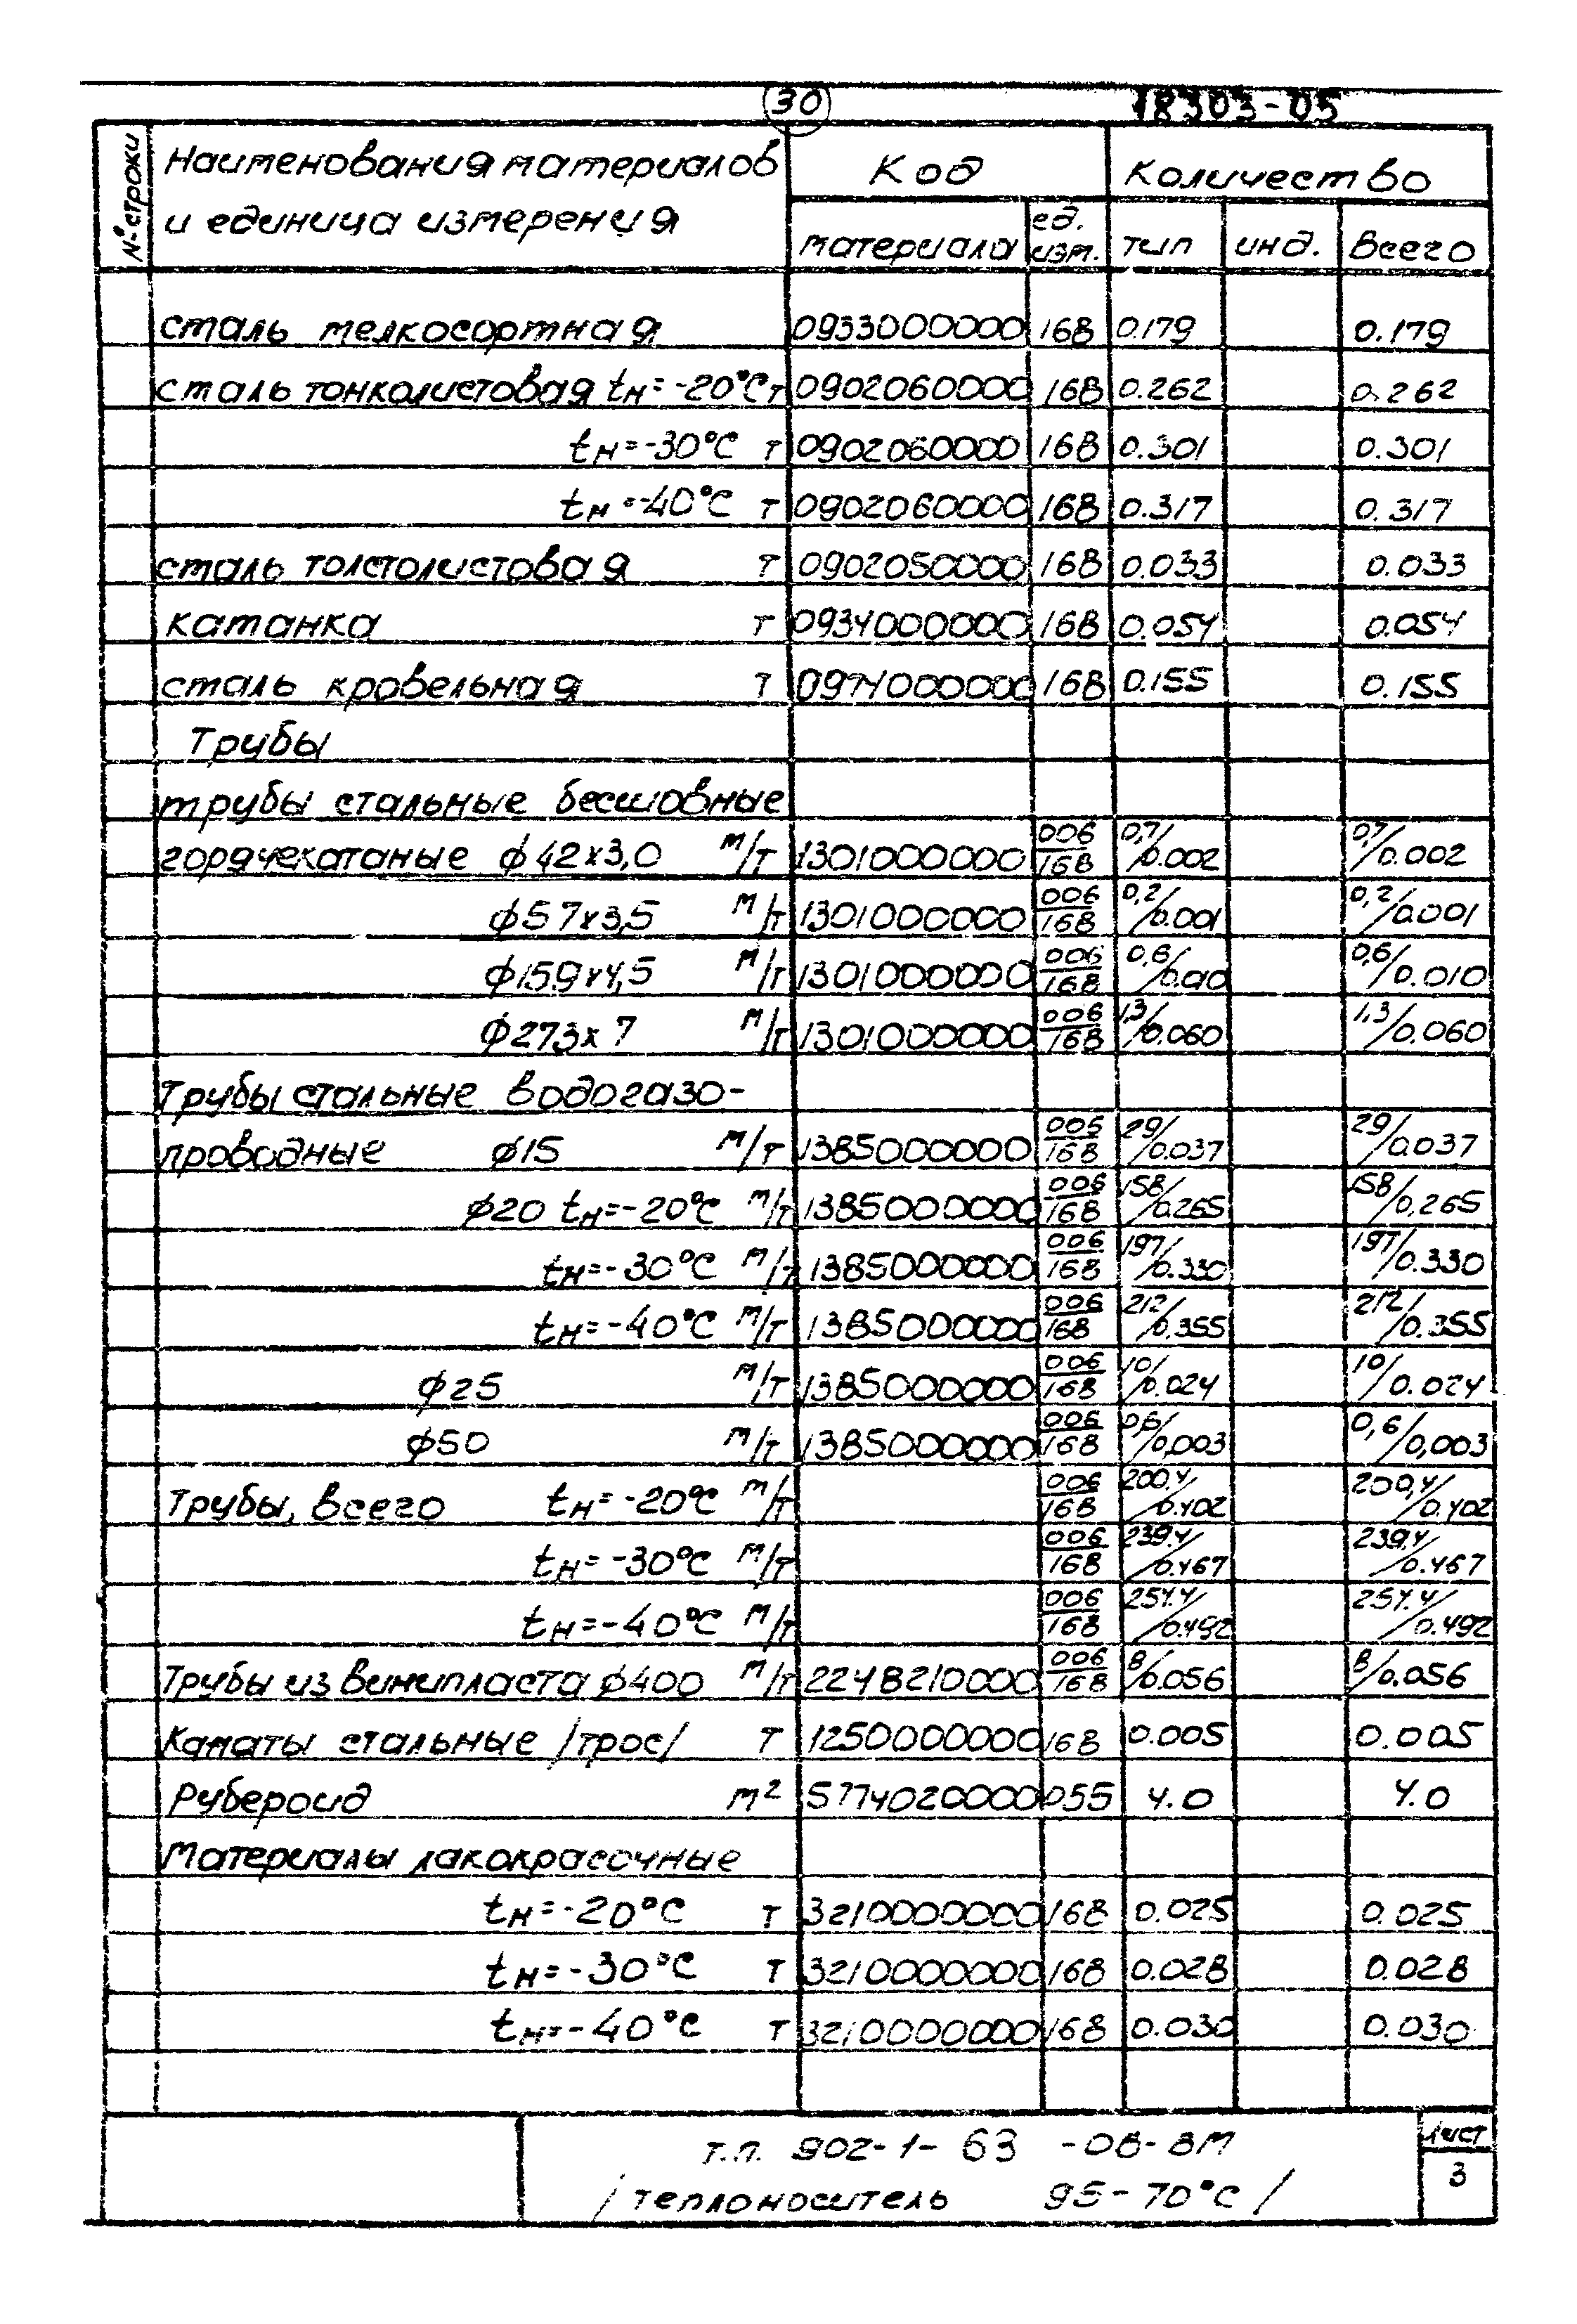 30 18303-05
№ строки Наименования материалов и единица измерения Код Количество
материала ед. изм. тип инд. Всего
сталь мелкосортная 0933000000 168 0.179 0.179
сталь тонколистовая tн=-20°С т 0902060000 168 0.262 0.262
tн=-30°С т 0902060000 168 0.301 0.301
tн=-40°С т 0902060000 168 0.317 0.317
сталь толстолистовая т 0902050000 168 0.033 0.033
катанка т 0934000000 168 0.054 0.054
сталь кровельная т 0974000000 168 0.155 0.155
Трубы
трубы стальные бесшовные
горячекатаные ф42х3,0 м/т 1301000000 006/168 0,7/0.002 0,7/0.002
ф57х3,5 м/т 1301000000 006/168 0,2/0.001 0,2/0.001
ф159х4,5 м/т 1301000000 006/168 0,6/0.010 0,6/0.010
ф273х7 м/т 1301000000 006/168 1,3/0.060 1,3/0.060
Трубы стальные водогазо-
проводные ф15 м/т 1385000000 006/168 29/0.037 29/0.037
ф20 tн=-20°С м/т 1385000000 006/168 158/0.265 158/0,265
tн=-30°С м/т 1385000000 006/168 197/0.330 197/0.330
tн=-40°С м/т 1385000000 006/168 212/0.355 212/0.355
ф25 м/т 1385000000 006/168 10/0.024 10/0.024
ф50 м/т 1385000000 006/168 0,6/0,003 0,6/0,003
Трубы, всего tн=-20°С м/т 006/168 200.4/0.402 200,4/0.402
tн=-30°С м/т 006/168 239.4/0.467 239.4/0.467
tн=-40°С м/т 006/168 254.4/0.492 254.4/0.492
Трубы из винипласта ф400 м/т 2248210000 006/168 8/0.056 8/0.056
Канаты стальные /трос/ т 1250000000 168 0.005 0.005
Рубероид м² 5774020000 055 4.0 4.0
Материалы лакокрасочные
tн=-20°С т 3210000000 168 0.025 0.025
tн=-30°С т 3210000000 168 0.028 0.028
tн=-40°С т 3210000000 168 0.030 0.030
т.п. 902-1-63 -ОВ-ВМ Лист
/теплоноситель 95-70°С/ 3